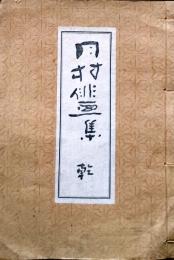 月村俳画集
乾